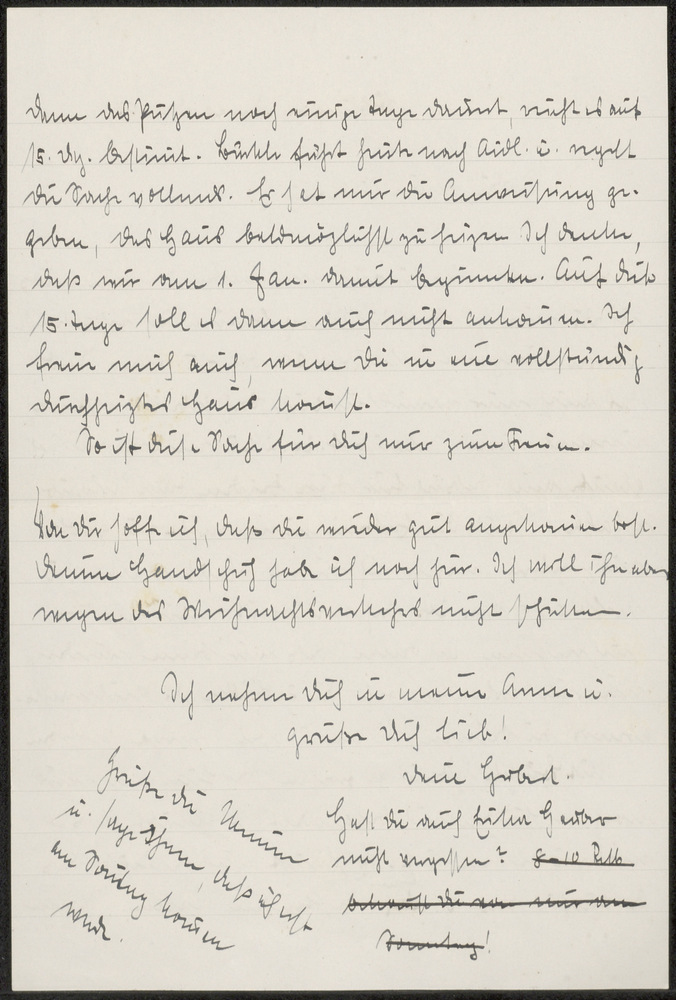 dann das Putzen noch einige Tage dauert, reicht es auf
15. Dez. bestimmt. Bürkle fährt heute nach Aidl. u. regelt
die Sache vollends. Er hat mir die Anweisung ge-
geben, das Haus baldmöglichst zu heizen. Ich denke,
daß wir am 1. Jan. damit beginnen. Auf diese
15. Tage soll es dann auch nicht ankommen. Ich
freue mich auch, wenn Du in ein vollständig
durchheiztes Haus kommst.
So ist diese Sache für Dich nur zum Freuen.
Von Dir hoffe ich, daß Du wieder gut angekommen bist.
Deinen Handschuh habe ich noch hier. Ich will ihn aber
wegen des Weihnachtsverkehrs nicht schicken.
Ich nehme Dich in meine Arme u.
grüße Dich lieb!
Dein
Hast Du auch
nicht vergessen? 8-10 
bekommst Du von mir am
Sonntag!
Grüße die
u. sage Ihnen, daß ich erst
am Sonntag kommen
werde.